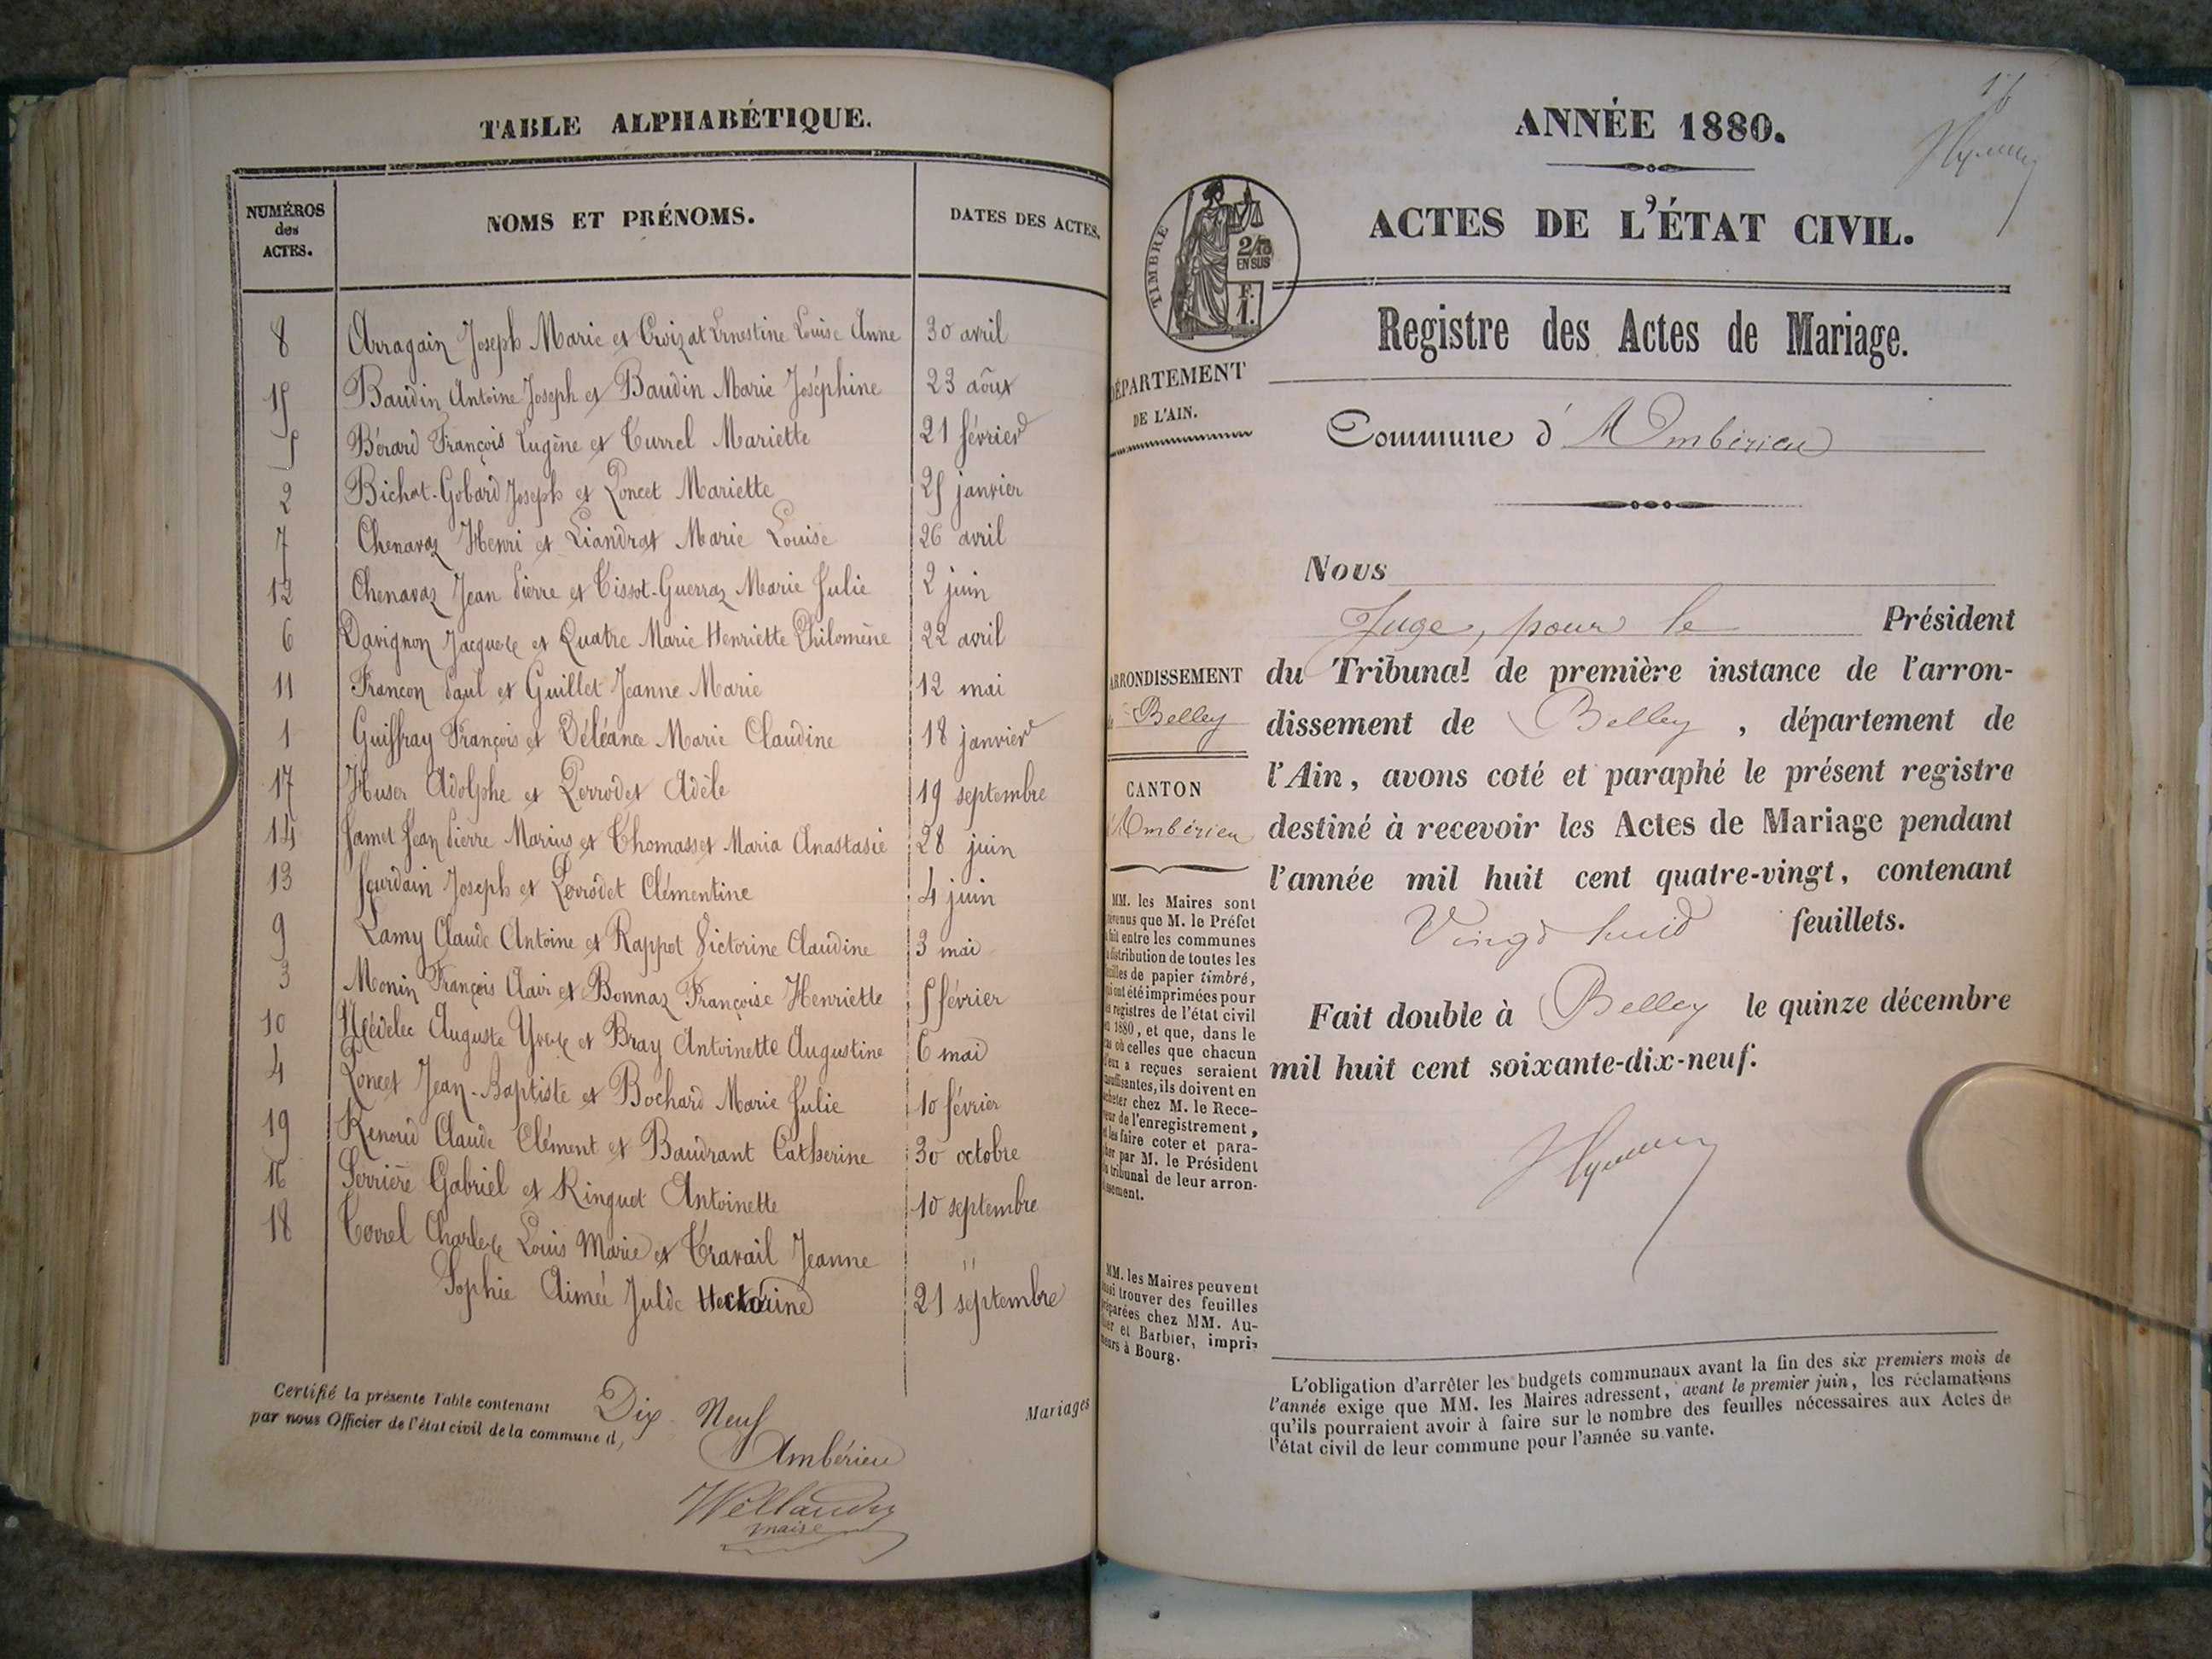 TABLE ALPHABÉTIQUE.
NUMÉROS
des
ACTES.
NOMS ET PRÉNOMS.
DATES DES ACTES.
8 Arragain Joseph Marie et Croizat Ernestine Louise Anne 30 avril
15 Baudin Antoine Joseph et Baudin Marie Joséphine 23 août
5 Bérard François Eugène et Currel Mariette 21 février
2 Bichat-Gobard Joseph et Poncet Mariette 25 janvier
7 Chenavaz Henri et Liandrat Marie Louise 26 avril
12 Chenavaz Jean Pierre et Tissot-Guerraz Marie Julie 2 juin
6 Davignon Jacques et Quatre Marie Henriette Philomène 22 avril
11 Françon Paul et Guillet Jeanne Marie 12 mai
1 Guiffray François et Déléance Marie Claudine 18 janvier
17 Huser Adolphe et Perrodet Adèle 19 septembre
14 Jamet Jean Pierre Marius et Thomasset Maria Anastasie 28 juin
13 Jourdain Joseph et Perrodet Clémentine 4 juin
9 Lamy Claude Antoine et Rappet Victorine Claudine 3 mai
3 Monin François Clair et Bonnaz Françoise Henriette 5 février
10 Nédelec Auguste Yves et Bray Antoinette Augustine 6 mai
4 Poncet Jean-Baptiste et Bochard Marie Julie 10 février
19 Renoud Claude Clément et Baudrant Catherine 30 octobre
16 Serrière Gabriel et Ringuet Antoinette 10 septembre
18 Correl Charles Louis Marie et Travail Jeanne "
Sophie Aimée Julde 21 septembre
Certifié la présente Table contenant Dix-Neuf Mariages
par nous Officier de l'état civil de la commune d' Ambérieu
maire
ANNÉE 1880.
ACTES DE L'ÉTAT CIVIL.
TIMBRE
2/10
EN SUS
F.
1.
Registre des Actes de Mariage.
DÉPARTEMENT
DE L'AIN.
Commune d' Ambérieu
Nous
Juge, pour le Président
du Tribunal de première instance de l'arron-
dissement de Belley, département de
l'Ain, avons coté et paraphé le présent registre
destiné à recevoir les Actes de Mariage pendant
l'année mil huit cent quatre-vingt, contenant
Vingt huit feuillets.
Fait double à Belley le quinze décembre
mil huit cent soixante-dix-neuf.
ARRONDISSEMENT
de Belley
CANTON
d'Ambérieu
MM. les Maires sont
prévenus que M. le Préfet
a fait entre les communes
la distribution de toutes les
feuilles de papier timbré,
qui ont été imprimées pour
les registres de l'état civil
en 1880, et que, dans le
cas où celles que chacun
d'eux a reçues seraient
insuffisantes, ils doivent en
acheter chez M. le Rece-
veur de l'enregistrement,
et les faire coter et para-
pher par M. le Président
du tribunal de leur arron-
dissement.
MM. les Maires peuvent
aussi trouver des feuilles
préparées chez MM. Au-
thier et Barbier, impri-
meurs à Bourg.
L'obligation d'arrêter les budgets communaux avant la fin des six premiers mois de
l'année exige que MM. les Maires adressent, avant le premier juin, les réclamations
qu'ils pourraient avoir à faire sur le nombre des feuilles nécessaires aux Actes de
l'état civil de leur commune pour l'année su vante.